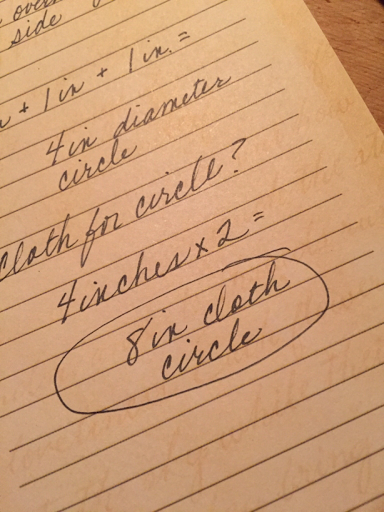 side
+ 1in + 1in. =
4in diameter
circle
cloth for circle?
4inches x 2 =
8in cloth
circle